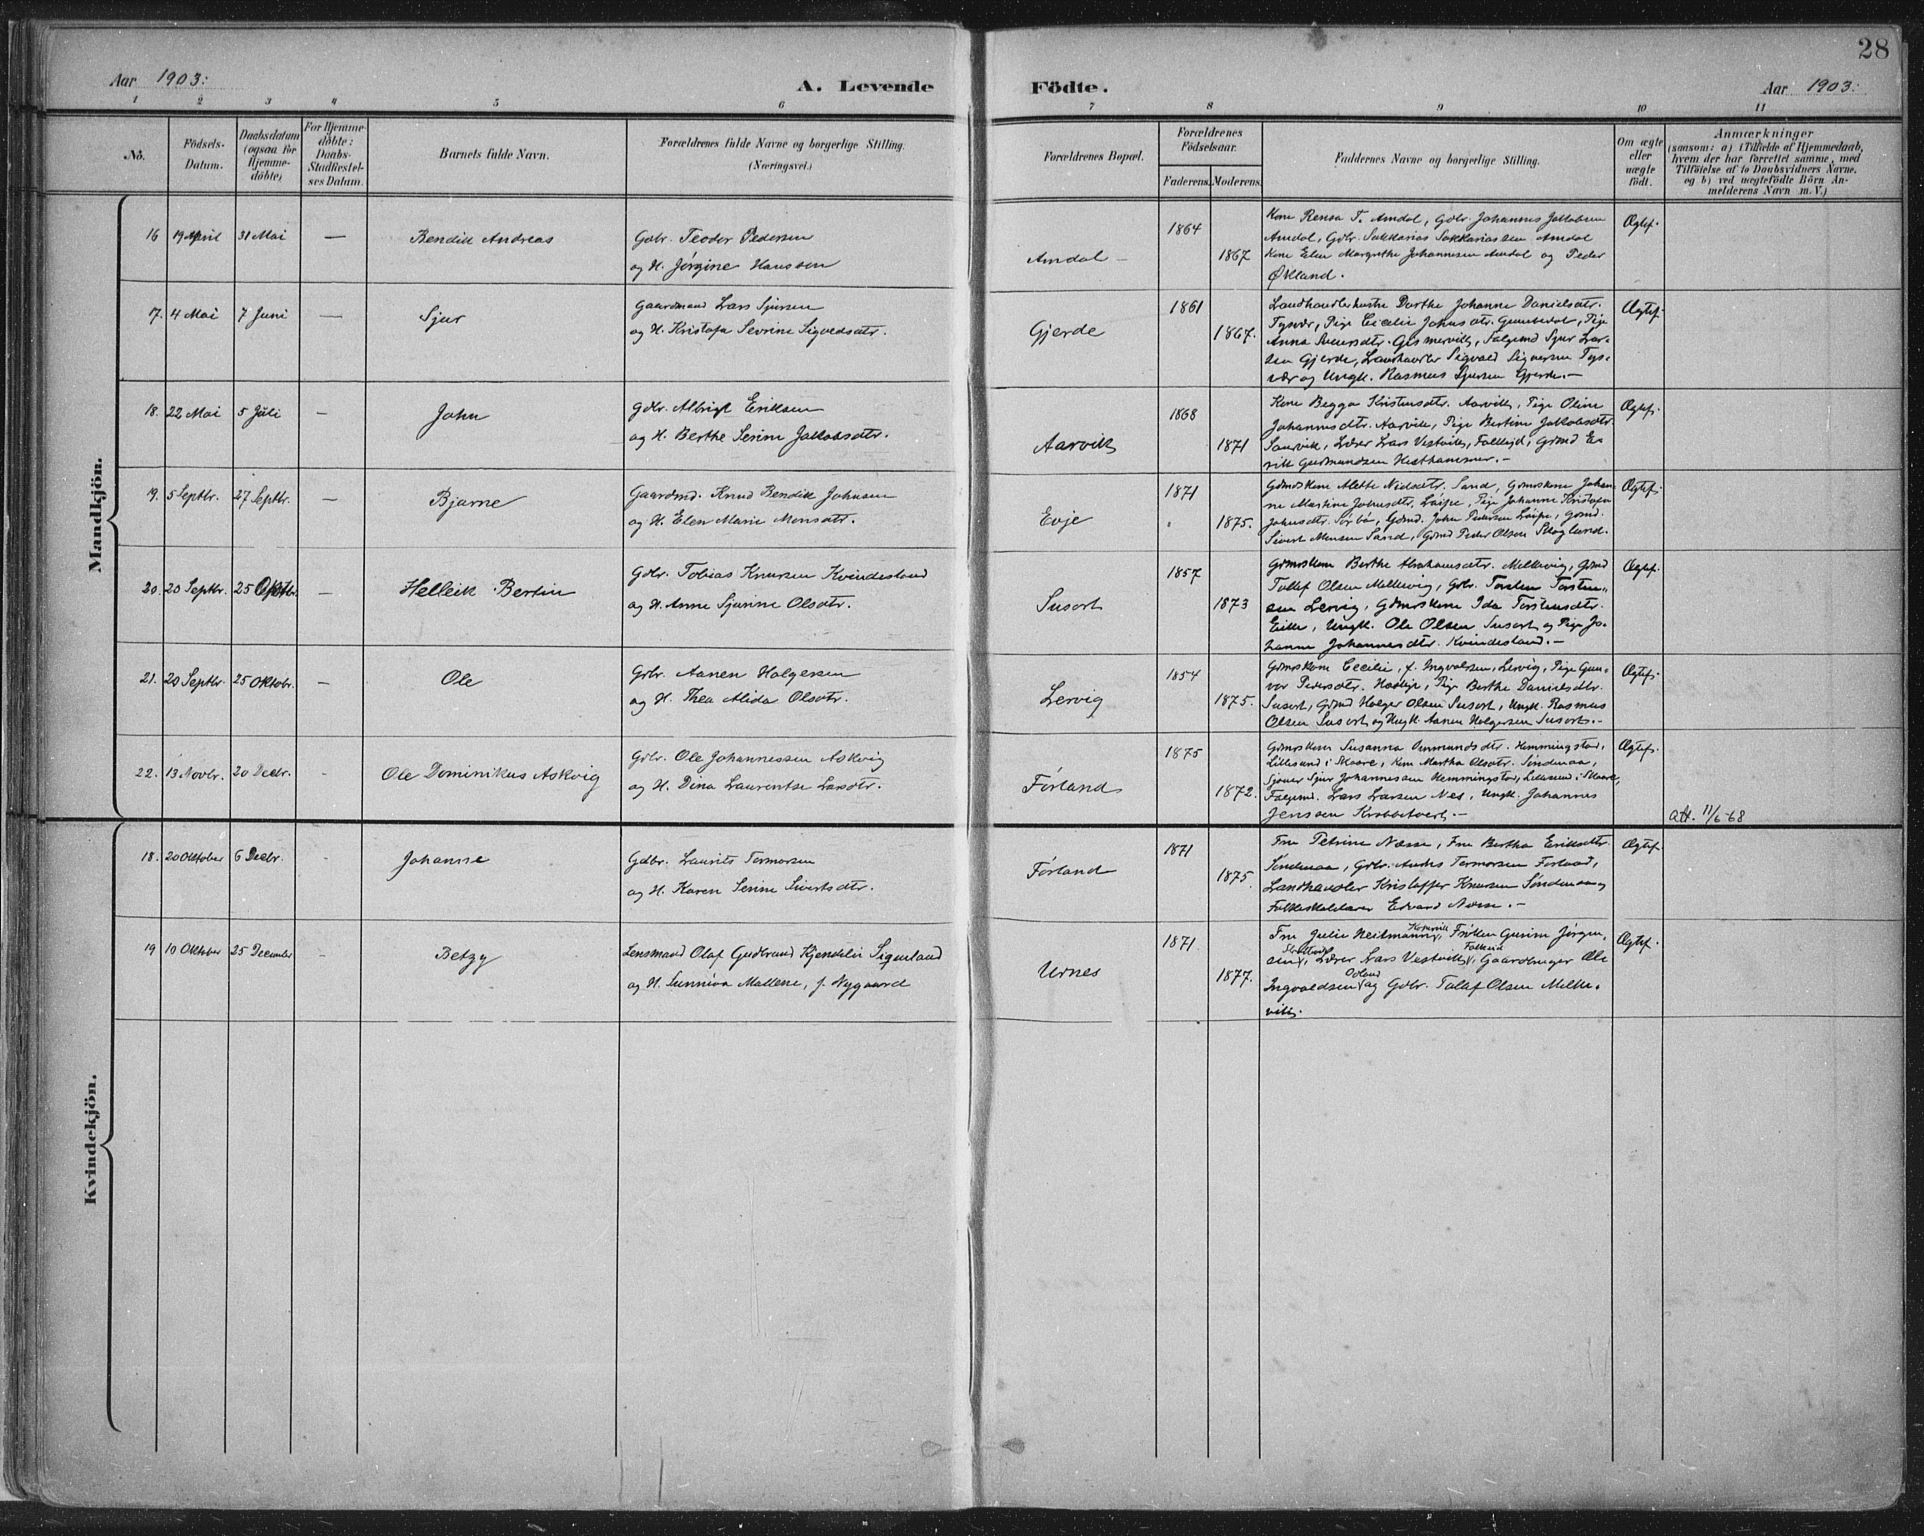 28
Aar 1903:
A. Levende
Födte.
Aar 1903:
1 2 3 4 5 6 7 8 9 10 11
Nö.
Födsels-
Datum.
Daabsdatum
(ogsaa for
Hjemme-
döbte)
For Hjemme-
döbte:
Daabs-
Stadfæstel-
ses Datum.
Barnets fulde Navn.
Forældrenes fulde Navne og borgerlige Stilling.
(Næringsvei.)
Forældrenes Bopæl.
Forældrenes
Födselsaar.
Faderens. Moderens.
Faddernes Navne og borgerlige Stilling.
Om ægte
eller
uægte
födt.
Anmærkninger
(saasom: a) i Tilfælde af Hjemmedaab,
hvem der har forrettet samme, med
Tilföielse af to Daabsvidners Navne.
og b) ved uægtefödte Börn An-
melderens Navn m. V.)
Mandkjön.
16 19 April 31 Mai — Bendik Andreas
Gdbr. Teodor Pedersen
og H. Jørgine Hanssen
Amdal –
1864
1867
Kone Rensa T. Amdal, Gdbr. Johannes Jakobsen
Amdal, Gdbr. Sakkarias Sakkariassen Amdal
Kone Elen Margrethe Johannesen Amdal og Peder
Økland.
Ægtef.
17. 4 Mai 7 Juni — Sjur
Gaardmand Lars Sjursen
og H. Kristofa Sevrine Sigvedsdtr.
Gjerde
1861
1867.
Landhandlerhustru Dorthe Johanne Danielsdtr.
Tysvær, Pige Cecilie Johnsdtr.
Anna
Gjerde, Landhandler Sigvald Sigversen Tys-
vær og Ungk. Rasmus Sjursen Gjerde. –
Ægtef.
18. 22 Mai 5 Juli – John
Gdbr. Albrigt Eriksen
og H. Berthe Serine Jakobsdtr.
Aarvik
1868
1871
Kone Begga Kristensdtr. Aarvik, Pige Oline
Johannesdtr. Aarvik, Pige Bertine Jakobsdtr.
Sandvik, Lærer Lars Vestvik, Falkeid, Grmd E-
rik Gudmundsen Hesthammer. –
Ægtef.
19. 5 Septbr. 27 Septbr. — Bjarne
Gaardmd. Knud Bendik Johnsen
og H. Elen Marie Monsdtr.
Evje
1871
1875.
Grmdskone Alette Nilsdtr. Sand, Grmdskone Johan-
ne Martine Johnsdtr. Pige Johanne Kristofa
Johnsdtr. Sørbø, Grmd. John Pedersen Grmd.
Sivert Monsen Sand, Grmd Peder Olsen Skogland.
Ægtef.
20. 20 Septbr. 25 Oktbr. – Helleik Bertin
Gdbr. Tobias Knutsen Kvindesland
og H. Anne Sjurine Olsdtr.
Susort
1857
1873
Grmdskone Berthe Abrahamsdtr. Melkevig, Grmd
Tollef Olsen Melkevig, Gdbr. Torsten Torsten-
sen Lervig, Grmdskone Ida Torstensdtr.
Eike, Ungk. Ole Olsen Susort og Pige Jo-
hanne Johannesdtr. Kvindesland. –
Ægtef.
21. 20 Septbr. 25 Oktobr. – Ole
Gdbr. Aanen Holgersen
og H. Thea Alida Olsdtr.
Lervig
1854
1875.
Grmdskone Cecilie, f. Ingvaldsen, Lervig, Pige Gun-
vor Pedersdtr. Pige Berthe Danielsdtr.
Susort, Grmd Holger Olsen Susort, Ungk. Rasmus
Olsen Susort og Ungk. Aanen Holgersen Susort. –
Ægtef.
22. 13 Novbr. 20 Decbr. – Ole Dominikus Askvig
Gdbr. Ole Johannessen Askvig
og H. Dina Laurentse Larsdtr.
Førland
1875
1872.
Grmdskone Susanna Ommundsdtr. Hemmingstad,
Lillesund i Skaare, Kone Martha Olsdtr. Søndenaa,
Sjøver Sjur Johannessen Hemmingstad, Lillesund i Skaare,
Lars Larsen Nes, Ungk. Johannes
Jenssen Krabbetveit. –
Ægtef.
Att. 11/6-68
Kvindekjön.
18. 20 Oktober 6 Decbr. – Johanne
Gdbr. Laurits Tormodsen
og H. Karen Serine Sivertsdtr.
Førland
1871
1875.
Fru Petrine Næsse, Fru Bertha Eriksdtr.
Søndenaa, Gdbr. Anders Tormodsen Førland,
Landhandler Kristoffer Knutsen Søndenaa og
Folkeskolelærer Edvard Næsse. –
Ægtef.
19 10 Oktober 25 December Betzy
Lensmand Olaf Gudbrand Kjendalie Sigurland
og H. Sunniva Mallene, f. Nygaard
Urnes
1871
1877.
Fru Julie Heitmann, Frøken Gurine Jørgen-
sen, Lærer Lars Vestvik, Falkeid, Gaardbruger Ole
Ingvaldsen Odland og Gdbr. Tollef Olsen Melke-
vik.
Ægtef.